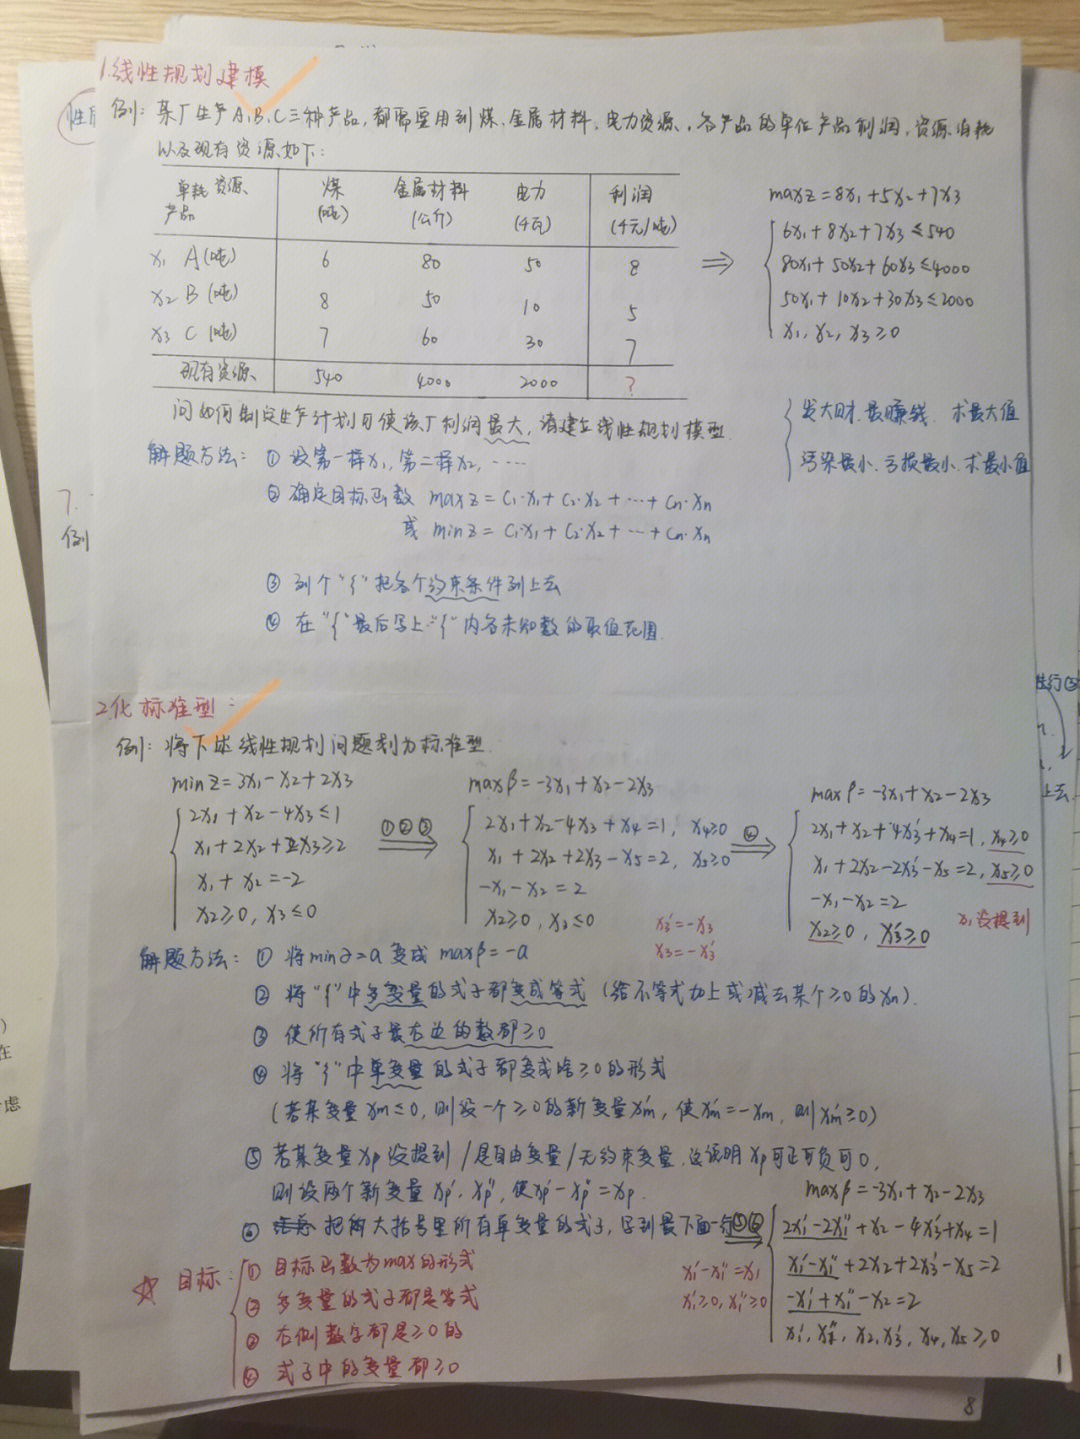 1.线性规划建模
例：某厂生产A、B、C三种产品，都需要用到煤、金属材料、电力资源，各产品的单位产品利润，资源消耗
以及现有资源如下：
单耗 资源 煤 金属材料 电力 利润
产品 (吨) (公斤) (千瓦) (千元/吨)
x₁ A(吨) 6 80 50 8
x₂ B(吨) 8 50 10 5
x₃ C(吨) 7 60 30 7
现有资源 540 4000 2000 ?
⇒
maxz=8x₁+5x₂+7x₃
6x₁+8x₂+7x₃≤540
80x₁+50x₂+60x₃≤4000
50x₁+10x₂+30x₃≤2000
x₁,x₂,x₃≥0
问如何制定生产计划可使该厂利润最大，请建立线性规划模型.
发大财.最赚钱. 求最大值
污染最小.亏损最小.求最小值
解题方法：① 设第一样x₁,第二样x₂,……
② 确定目标函数 maxz=c₁·x₁+c₂·x₂+…+cn·xn
或 minz=c₁·x₁+c₂·x₂+…+cn·xn
③ 列个“{”把各个约束条件列上去
④ 在“{”最后写上“{”内各未知数的取值范围.
7.
例
2.化标准型：
例：将下述线性规划问题划为标准型.
minz=3x₁-x₂+2x₃
2x₁+x₂-4x₃≤1
x₁+2x₂+2x₃≥2
x₁+x₂=-2
x₂≥0,x₃≤0
①②③
maxβ=-3x₁+x₂-2x₃
2x₁+x₂-4x₃+x₄=1, x₄≥0
x₁+2x₂+2x₃-x₅=2, x₅≥0
-x₁-x₂=2
x₂≥0,x₃≤0
x₃'=-x₃
x₃=-x₃'
④
maxβ=-3x₁+x₂-2x₃
2x₁+x₂+4x₃'+x₄=1,x₄≥0
x₁+2x₂-2x₃'-x₅=2,x₅≥0
-x₁-x₂=2
x₂≥0,x₃'≥0
x₁没提到
解题方法：① 将minz=a变成maxβ=-a
② 将“{”中多变量的式子都变成等式(给不等式加上或减去某个≥0的xn).
③ 使所有式子最右边的数都≥0
④ 将“{”中单变量的式子都变成啥≥0的形式
(若某变量xm≤0,则设一个≥0的新变量xm',使xm'=-xm,则xm'≥0)
⑤ 若某变量xp没提到/是自由变量/无约束变量,这说明xp可正可负可0,
则设两个新变量xp'、xp'',使xp'-xp''=xp.
⑥ 把两大括号里所有单变量的式子,写到最下面一行
⑤⑥
x₁'-x₁''=x₁
x₁'≥0,x₁''≥0
maxβ=-3x₁+x₂-2x₃
2x₁'-2x₁''+x₂-4x₃'+x₄=1
x₁'-x₁''+2x₂+2x₃'-x₅=2
-x₁'+x₁''-x₂=2
x₁',x₁'',x₂,x₃',x₄,x₅≥0
☆ 目标：① 目标函数为max的形式
② 多变量的式子都是等式
③ 右侧数字都是≥0的
④ 式子中的变量都≥0
1
8